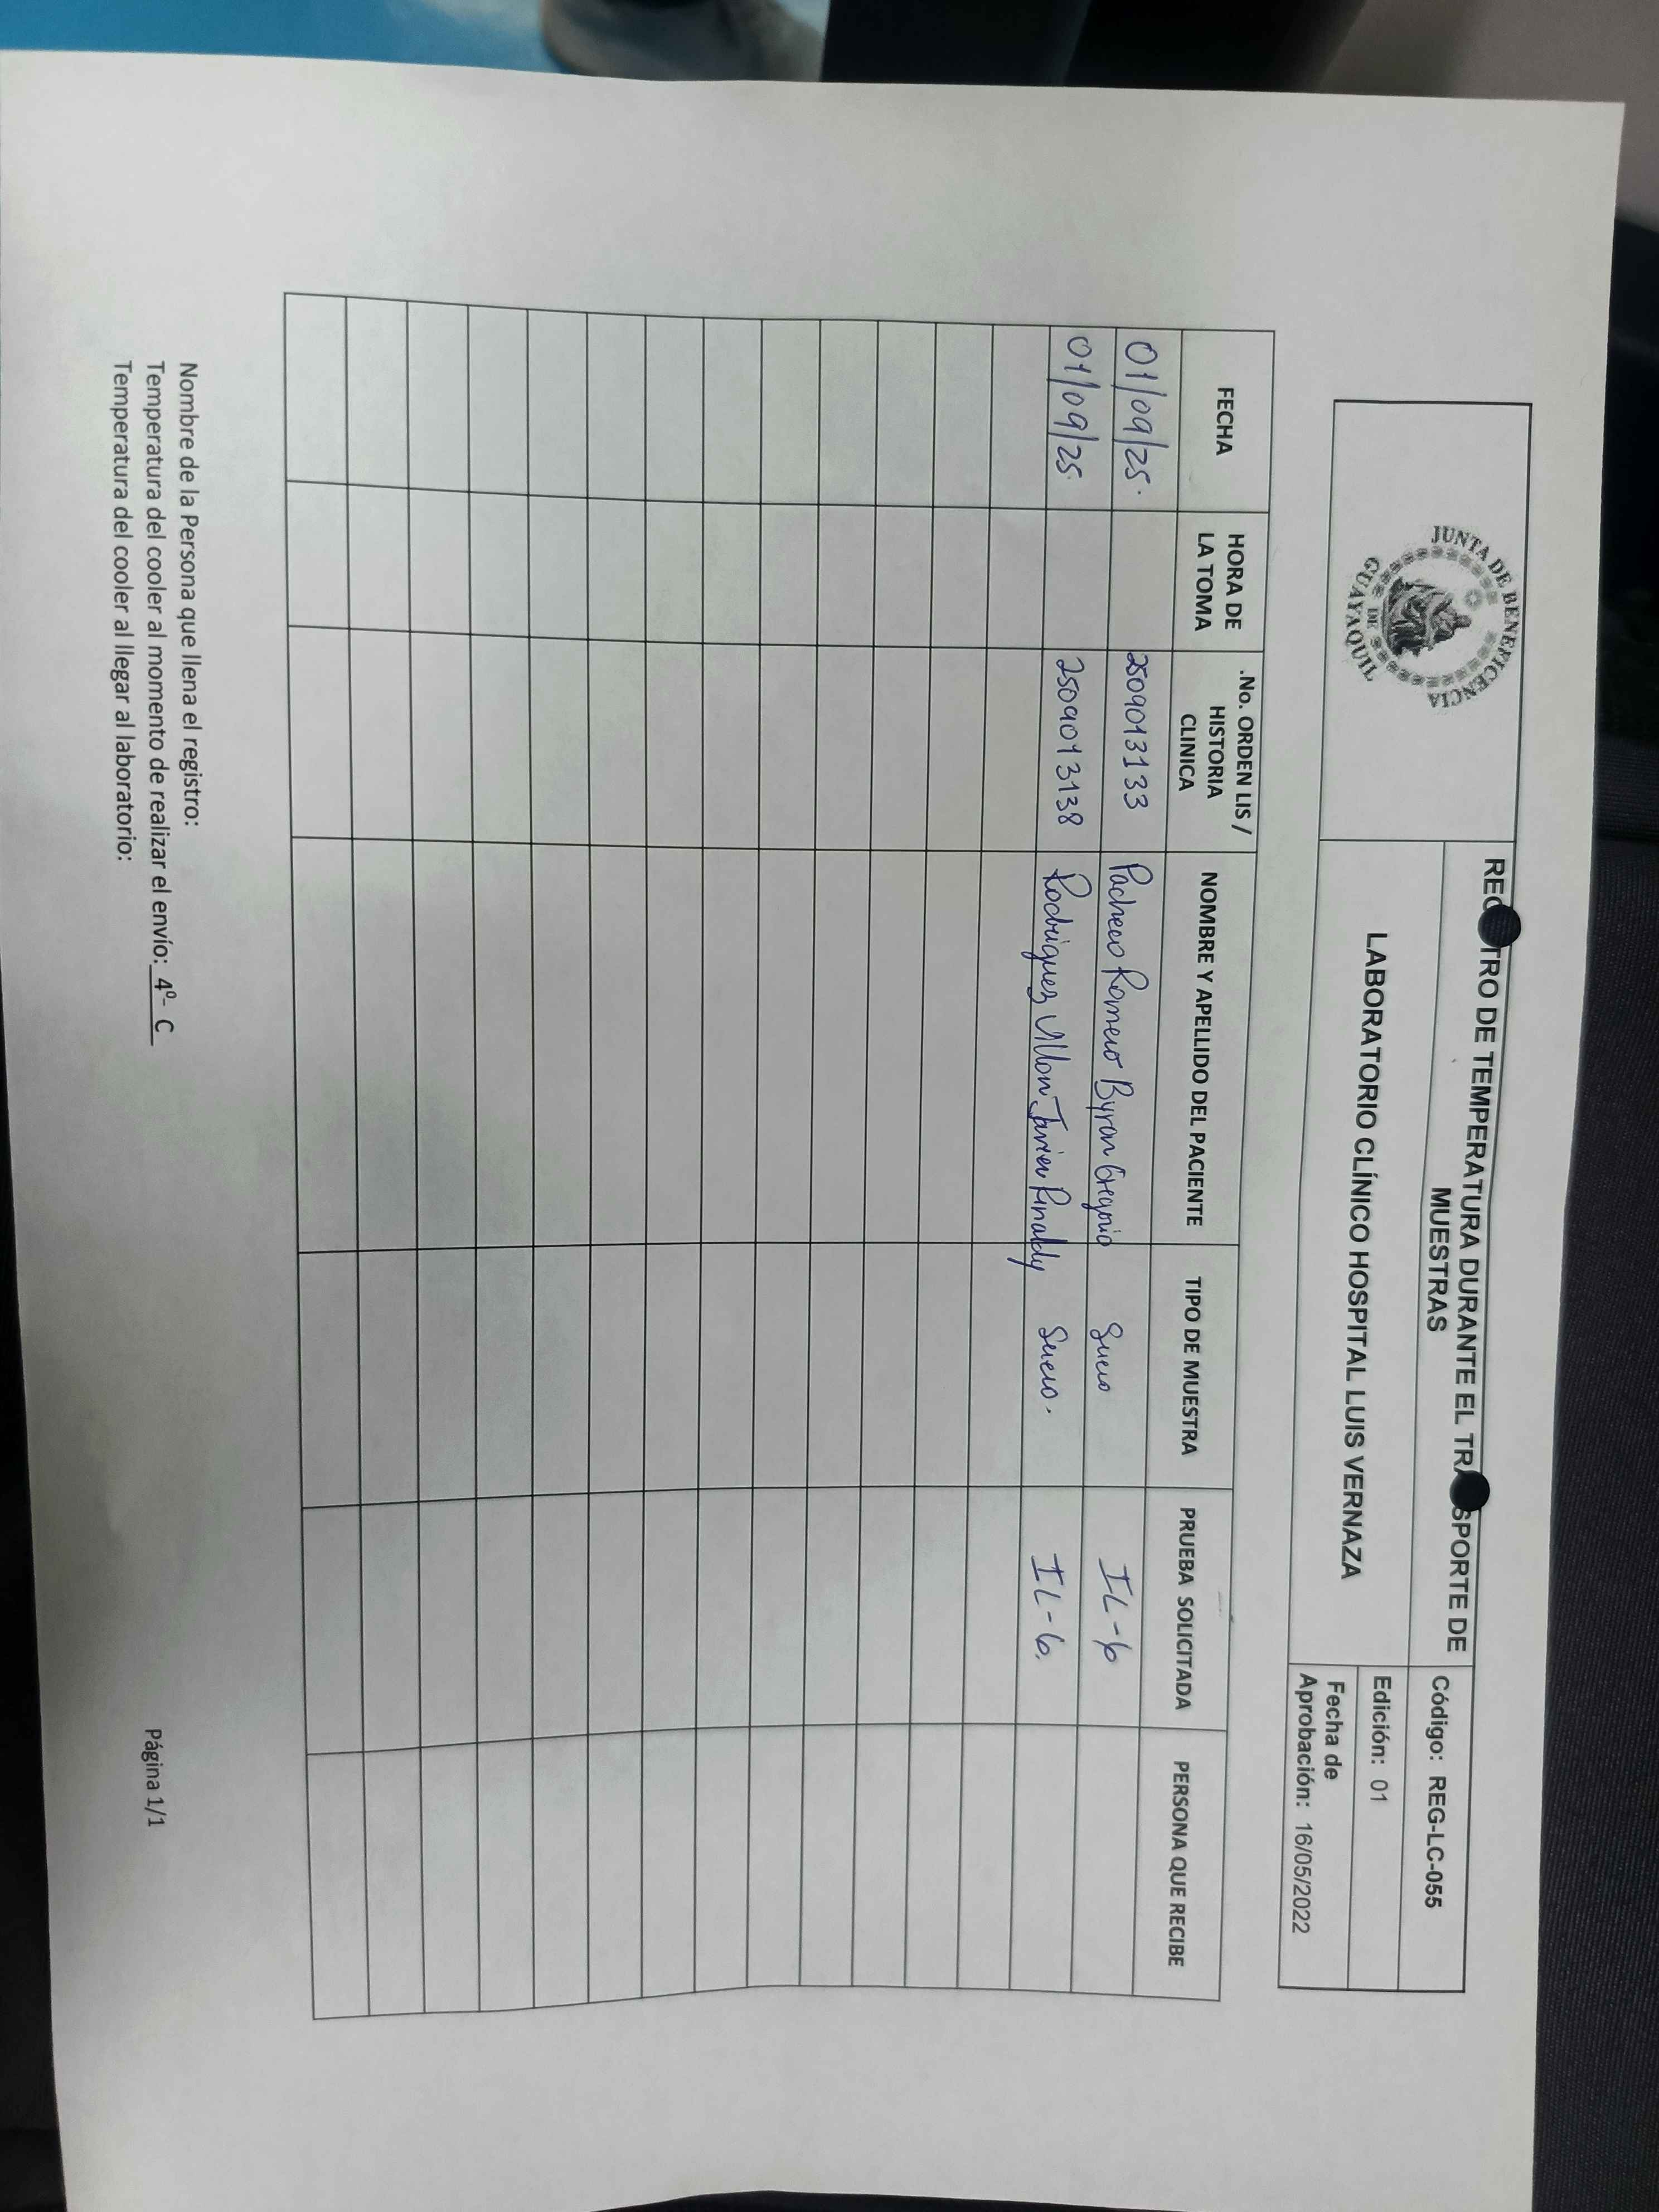 JUNTA DE BENEFICENCIA
DE
GUAYAQUIL
REG TRO DE TEMPERATURA DURANTE EL TRA SPORTE DE
MUESTRAS
LABORATORIO CLÍNICO HOSPITAL LUIS VERNAZA
Código: REG-LC-055
Edición: 01
Fecha de
Aprobación: 16/05/2022
FECHA HORA DE LA TOMA .No. ORDEN LIS / HISTORIA CLINICA NOMBRE Y APELLIDO DEL PACIENTE TIPO DE MUESTRA PRUEBA SOLICITADA PERSONA QUE RECIBE
01/09/25. 2509013133 Pacheco Romero Byron Gregorio Suero IL-6
01/09/25. 2509013138 Rodriguez Villon Javier Rinaldy Suero. IL-6.
Nombre de la Persona que llena el registro:
Temperatura del cooler al momento de realizar el envío: 4º- C
Temperatura del cooler al llegar al laboratorio:
Página 1/1